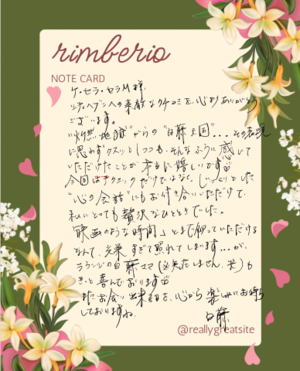 rimberio
NOTE CARD
ケ・セラ・セラM様
この素敵な口コミを、心よりありがとう
ございます。
"灼熱地獄"からの"白藤王国"...その表現
に思わずクスッとしつつも、そんなふうに感じて
いただけたことが本当に嬉しいです
今回はテクニックだけではなく、じっくりとした
"心の会話"にもお付き合いいただけて、
私にとっても贅沢なひとときでした。
"映画のような時間"とまで仰っていただける
なんて、光栄すぎて照れてしまいます...が、
ラウンジの白藤ママ(出来たしません、笑)も
きっと喜んでおります
またお会い出来る日を、心から楽しみにお待ち
しておりますね。
白藤
@reallygreatsite